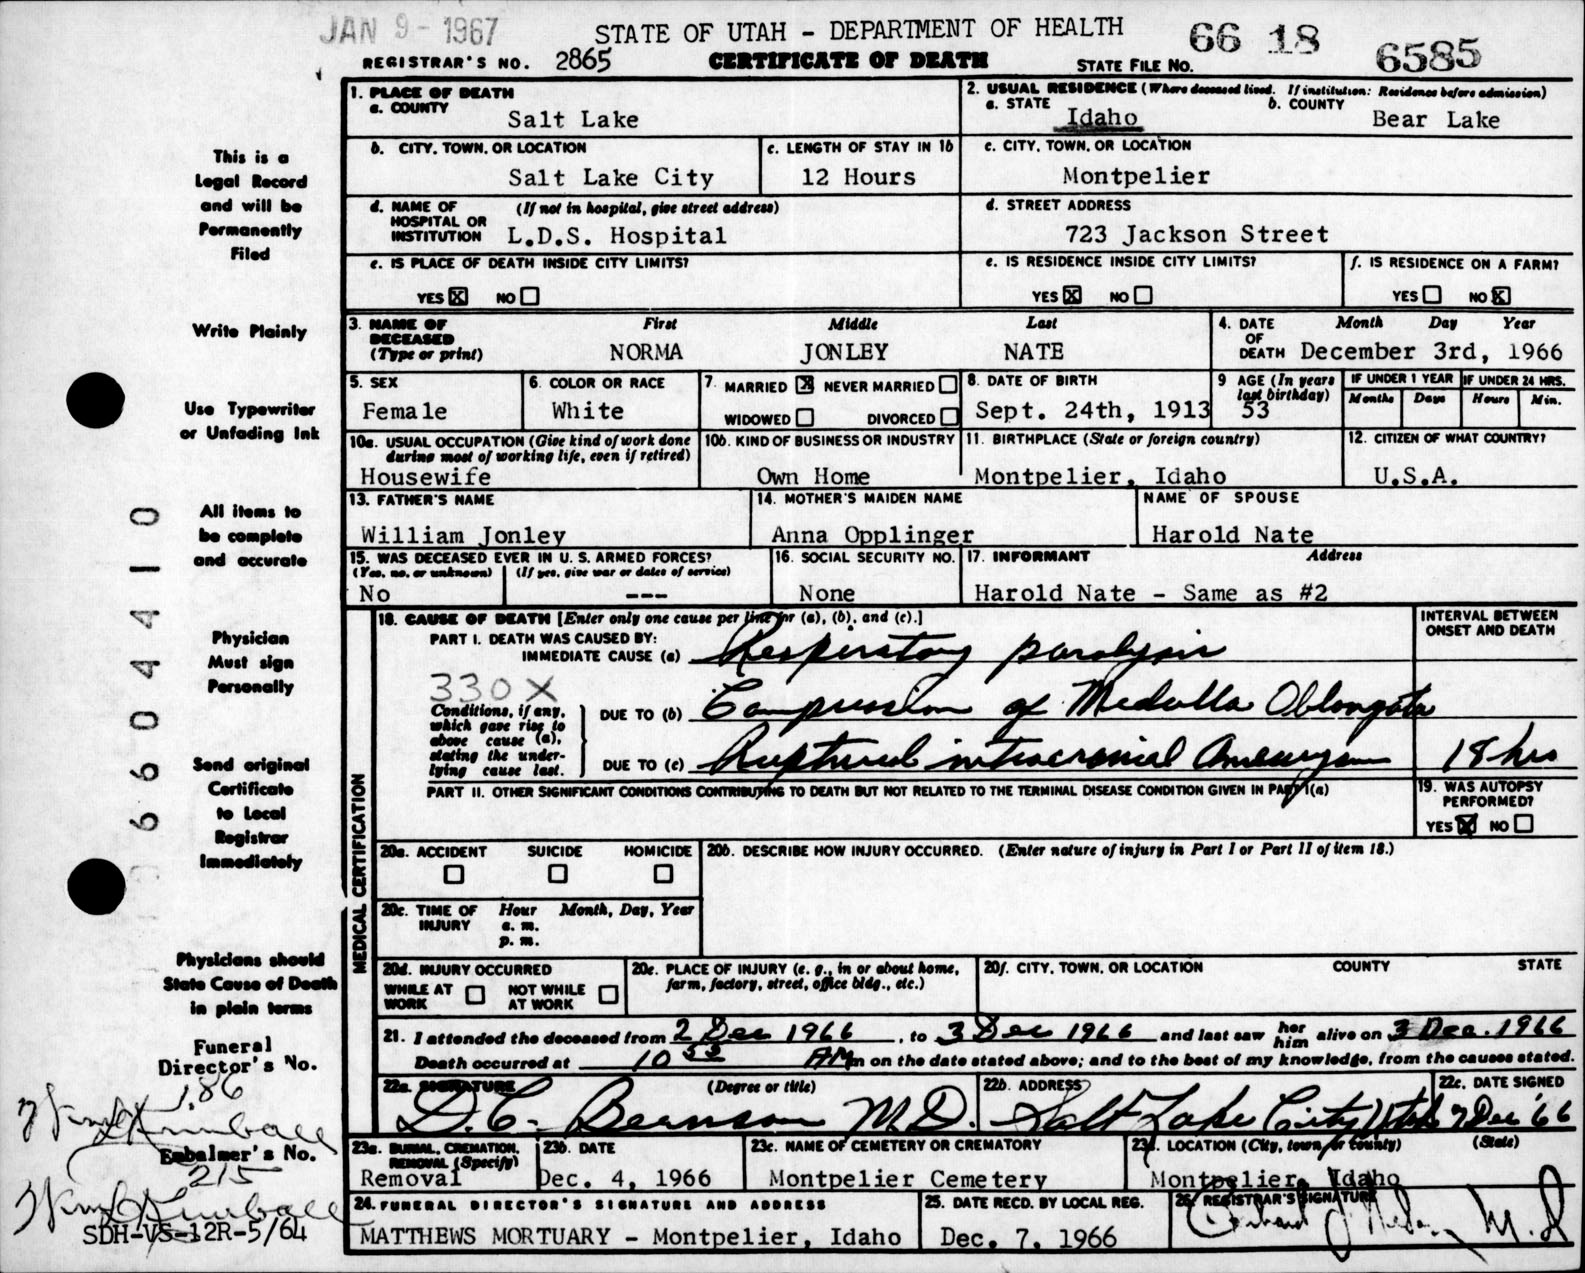 JAN 9 - 1967
STATE OF UTAH - DEPARTMENT OF HEALTH
66 18 6585
REGISTRAR'S NO. 2865
CERTIFICATE OF DEATH
STATE FILE NO.
1. PLACE OF DEATH
a. COUNTY
Salt Lake
2. USUAL RESIDENCE (Where deceased lived. If institution: Residence before admission)
a. STATE
Idaho
b. COUNTY
Bear Lake
b. CITY, TOWN, OR LOCATION
Salt Lake City
c. LENGTH OF STAY IN 1b
12 Hours
c. CITY, TOWN, OR LOCATION
Montpelier
d. NAME OF HOSPITAL OR INSTITUTION
(If not in hospital, give street address)
L.D.S. Hospital
d. STREET ADDRESS
723 Jackson Street
e. IS PLACE OF DEATH INSIDE CITY LIMITS?
YES X NO
e. IS RESIDENCE INSIDE CITY LIMITS?
YES X NO
f. IS RESIDENCE ON A FARM?
YES NO X
3. NAME OF DECEASED (Type or print)
First Middle Last
NORMA JONLEY NATE
4. DATE OF DEATH
Month Day Year
December 3rd, 1966
5. SEX
Female
6. COLOR OR RACE
White
7. MARRIED X NEVER MARRIED
WIDOWED DIVORCED
8. DATE OF BIRTH
Sept. 24th, 1913
9 AGE (In years last birthday)
53
IF UNDER 1 YEAR
Months Days
IF UNDER 24 HRS.
Hours Min.
10a. USUAL OCCUPATION (Give kind of work done during most of working life, even if retired)
Housewife
10b. KIND OF BUSINESS OR INDUSTRY
Own Home
11. BIRTHPLACE (State or foreign country)
Montpelier, Idaho
12. CITIZEN OF WHAT COUNTRY?
U.S.A.
13. FATHER'S NAME
William Jonley
14. MOTHER'S MAIDEN NAME
Anna Opplinger
NAME OF SPOUSE
Harold Nate
15. WAS DECEASED EVER IN U. S. ARMED FORCES?
(Yes, no, or unknown) (If yes, give war or dates of service)
No ---
16. SOCIAL SECURITY NO.
None
17. INFORMANT Address
Harold Nate - Same as #2
MEDICAL CERTIFICATION
18. CAUSE OF DEATH [Enter only one cause per line for (a), (b), and (c).]
PART I. DEATH WAS CAUSED BY:
IMMEDIATE CAUSE (a) Respiratory paralysis
INTERVAL BETWEEN ONSET AND DEATH
330X
Conditions, if any, which gave rise to above cause (a), stating the underlying cause last.
DUE TO (b) Compression of Medulla Oblongata
DUE TO (c) Ruptured intracranial Aneurysm
18 hrs
PART II. OTHER SIGNIFICANT CONDITIONS CONTRIBUTING TO DEATH BUT NOT RELATED TO THE TERMINAL DISEASE CONDITION GIVEN IN PART I(a)
19. WAS AUTOPSY PERFORMED?
YES X NO
20a. ACCIDENT SUICIDE HOMICIDE
20b. DESCRIBE HOW INJURY OCCURRED. (Enter nature of injury in Part I or Part II of item 18.)
20c. TIME OF INJURY
Hour Month, Day, Year
a. m.
p. m.
20d. INJURY OCCURRED
WHILE AT WORK NOT WHILE AT WORK
20e. PLACE OF INJURY (e. g., in or about home, farm, factory, street, office bldg., etc.)
20f. CITY, TOWN, OR LOCATION COUNTY STATE
21. I attended the deceased from 2 Dec 1966, to 3 Dec 1966 and last saw her him alive on 3 Dec. 1966
Death occurred at 10 55 AM m on the date stated above; and to the best of my knowledge, from the causes stated.
22a. SIGNATURE (Degree or title)
D. C. Bernson M.D.
22b. ADDRESS
Salt Lake City Utah
22c. DATE SIGNED
7 Dec '66
23a. BURIAL, CREMATION, REMOVAL (Specify)
Removal
23b. DATE
Dec. 4, 1966
23c. NAME OF CEMETERY OR CREMATORY
Montpelier Cemetery
23d. LOCATION (City, town, or county) (State)
Montpelier, Idaho
24. FUNERAL DIRECTOR'S SIGNATURE AND ADDRESS
MATTHEWS MORTUARY - Montpelier, Idaho
25. DATE RECD. BY LOCAL REG.
Dec. 7, 1966
26. REGISTRAR'S SIGNATURE
M.D.
This is a
Legal Record
and will be
Permanently
Filed
Write Plainly
Use Typewriter
or Unfading Ink
All items to
be complete
and accurate
Physician
Must sign
Personally
Send original
Certificate
to Local
Registrar
Immediately
Physicians should
State Cause of Death
in plain terms
Funeral
Director's No.
186
Embalmer's No.
215
SDH-VS-12R-5/64
6604410